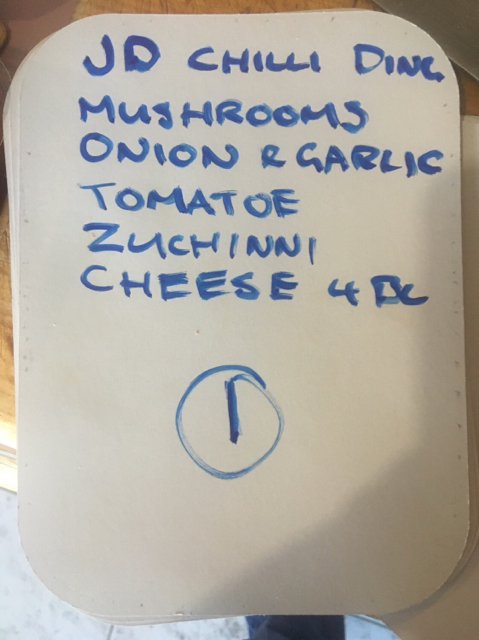 JD CHILLI DING
MUSHROOMS
ONION & GARLIC
TOMATOE
ZUCHINNI
CHEESE 4
1